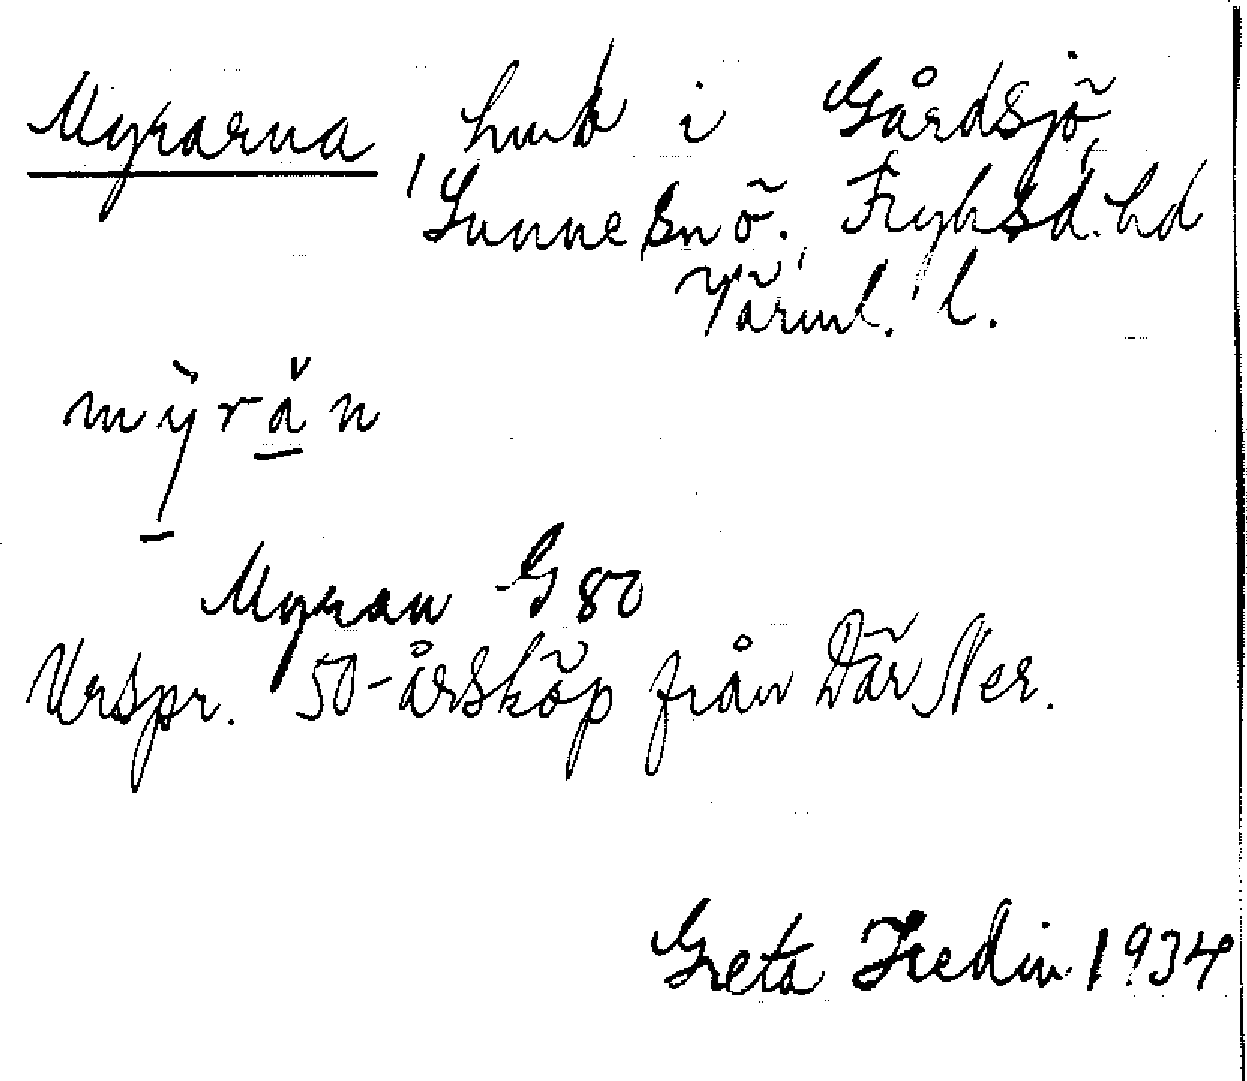 Myrarna, hmd i Gårdsjö,
Sunne sn ö., Fryksd. hd
Värml. l.
mỳrǎn
Myran G 80
Urspr. 50-årsköp från Där Ner.
Greta Hedin 1934